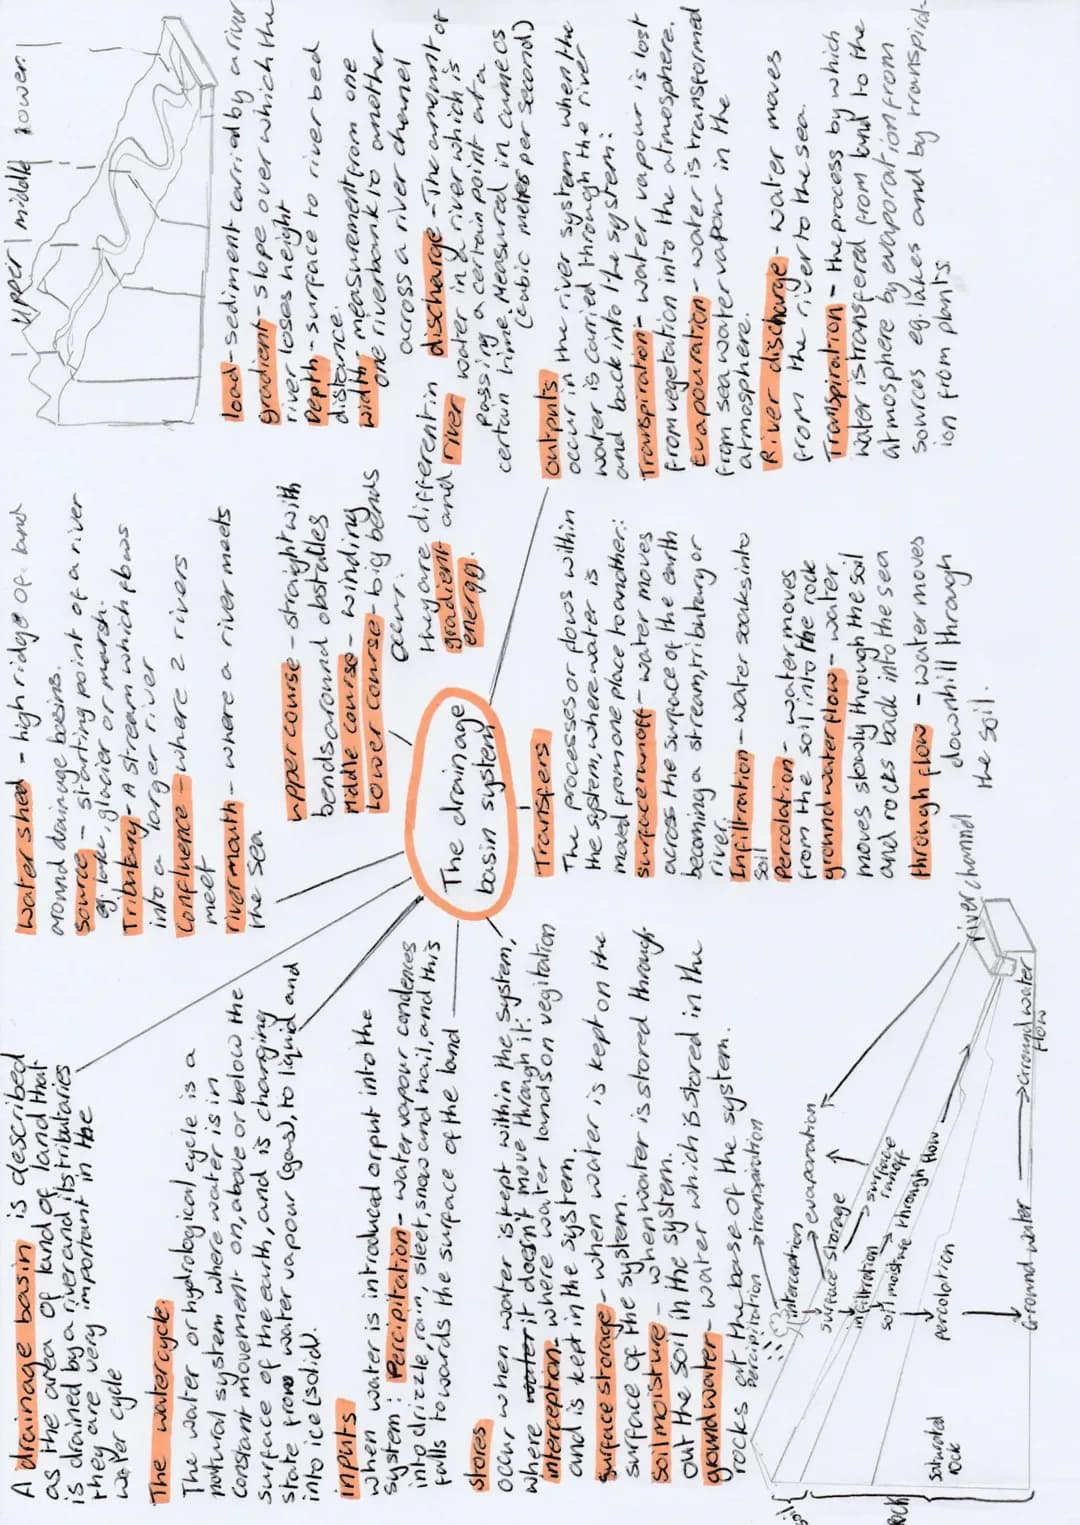 A drainage basin is described
as the area of land of land that
is drained by a river and its tributaries
they are very important in the
water cycle
The watercycle.
The water or hydrological cycle is a
natural system where water is in
constant movement on, above or below the
surface of the earth, and is changing
state from water vapour (gas), to liquid and
into ice (solid).
inputs
when water is introduced or put into the
system: Percipitation - water vapour condences
into drizzle, rain, sleet, snow and hail, and this
falls towards the surface of the land
stores
occur when water is kept within the system,
where water it doesn't move through it:
interception - where water lands on vegitation
and is kept in the system.
surface storage - when water is kept on the
surface of the system.
Soil moisture - when water is stored through
out the soil in the system.
groundwater - water which is stored in the
rocks at the base of the system.
percipitation
transpiration
interception
evaporation
surface storage
surface runoff
infiltration
soil moisture
through flow
percolation
Ground water
Groundwater flow
saturated rock
soil
rock
river channel
water shed - high ridge of land
around drainage basins.
Source - starting point of a river
eg. lake, glacier or marsh.
Tributary - A stream which flows
into a larger river
Confluence - where 2 rivers
meet
river mouth - where a river meets
the sea
upper course - straight with
bends around obstacles
middle course - winding
Lower course - big bends
occur.
they are different in
gradient and river
energy.
The drainage
basin system
Transfers
The processes or flows within
the system, where water is
moved from one place to another:
surface runoff - water moves
across the surface of the earth
becoming a stream, tributary or
river.
Infiltration - water soaks into
soil
Percolation - water moves
from the soil into the rock
groundwater flow - water
moves slowly through the soil
and rocks back into the sea
through flow - water moves
downhill through
the soil.
upper | middle lower |
load - sediment carried by a river
gradient - slope over which the
river loses height
Depth - surface to river bed
distance.
width - measurement from one
one riverbank to another
across a river channel
discharge - The amount of
water in a river which is
passing a certain point at a
certain time. Measured in cumecs
(cubic metres per second)
outputs
occur in the river system when the
water is carried through the river
and back into the system:
Transpiration - water vapour is lost
from vegetation into the atmosphere.
Evapouration - water is transformed
from sea water vapour in the
atmosphere.
River discharge - water moves
from the river to the sea.
Transpiration - the process by which
water is transfered from land to the
atmosphere by evaporation from
sources eg. lakes and by transpirat-
ion from plants.